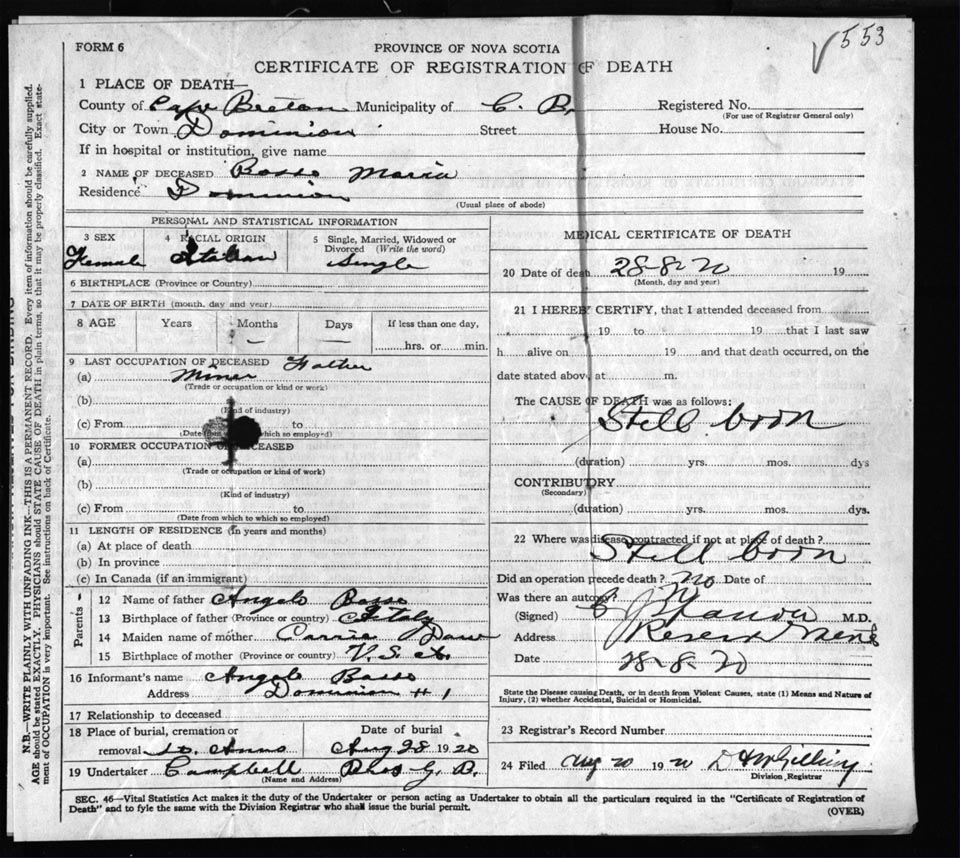 553
FORM 6
PROVINCE OF NOVA SCOTIA
CERTIFICATE OF REGISTRATION OF DEATH
1 PLACE OF DEATH—
County of Cape Breton Municipality of C. B. Registered No.
(For use of Registrar General only)
City or Town Dominion Street House No.
If in hospital or institution, give name
2 NAME OF DECEASED Basso Maria
Residence Dominion
(Usual place of abode)
PERSONAL AND STATISTICAL INFORMATION
3 SEX 4 RACIAL ORIGIN 5 Single, Married, Widowed or
Divorced (Write the word)
Female Italian Single
6 BIRTHPLACE (Province or Country)
7 DATE OF BIRTH (month, day and year)
8 AGE Years Months Days If less than one day,
— — hrs. or min.
9 LAST OCCUPATION OF DECEASED Father
(a) Miner
(Trade or occupation or kind or work)
(b)
(Kind of industry)
(c) From to
(Date from which to which so employed)
10 FORMER OCCUPATION OF DECEASED
(a)
(Trade or occupation or kind of work)
(b)
(Kind of industry)
(c) From to
(Date from which to which so employed)
11 LENGTH OF RESIDENCE (in years and months)
(a) At place of death
(b) In province
(c) In Canada (if an immigrant)
Parents
12 Name of father Angelo Basso
13 Birthplace of father (Province or country) Italy
14 Maiden name of mother Carria
15 Birthplace of mother (Province or country) U. S. A.
16 Informant's name Angelo Basso
Address Dominion # 1
17 Relationship to deceased
18 Place of burial, cremation or Date of burial
removal St. Anns Aug 28 1920
19 Undertaker Campbell G. B.
(Name and Address)
MEDICAL CERTIFICATE OF DEATH
20 Date of death 28-8-20 19
(Month, day and year)
21 I HEREBY CERTIFY, that I attended deceased from
19 to 19 that I last saw
h alive on 19 and that death occurred, on the
date stated above, at m.
The CAUSE OF DEATH was as follows:
Still born
(duration) yrs. mos. dys
CONTRIBUTORY
(Secondary)
(duration) yrs. mos. dys.
22 Where was disease contracted if not at place of death?
Still born
Did an operation precede death? no Date of
Was there an autopsy? N
(Signed) M.D.
Address Reserve Mines
Date 28-8-20
State the Disease causing Death, or in death from Violent Causes, state (1) Means and Nature of
Injury, (2) whether Accidental, Suicidal or Homicidal.
23 Registrar's Record Number
24 Filed Aug 20 1920
Division Registrar
SEC. 46—Vital Statistics Act makes it the duty of the Undertaker or person acting as Undertaker to obtain all the particulars required in the "Certificate of Registration of
Death" and to fyle the same with the Division Registrar who shall issue the burial permit.
(OVER)
N.B.—WRITE PLAINLY WITH UNFADING INK—THIS IS A PERMANENT RECORD. Every item of information should be carefully supplied.
AGE should be stated EXACTLY. PHYSICIANS should STATE CAUSE OF DEATH in plain terms, so that it may be properly classified. Exact state-
ment of OCCUPATION is very important. See instructions on back of Certificate.